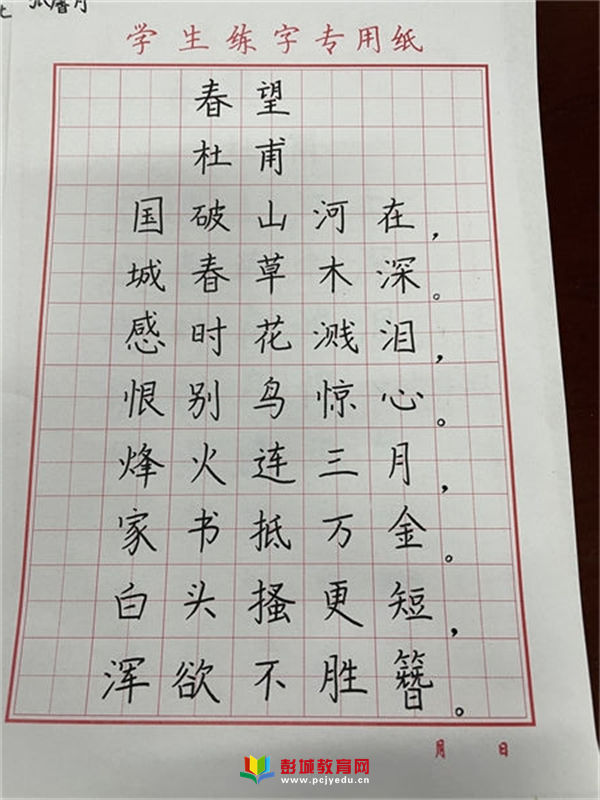 学生练字专用纸
春望
杜甫
国破山河在，
城春草木深。
感时花溅泪，
恨别鸟惊心。
烽火连三月，
家书抵万金。
白头搔更短，
浑欲不胜簪。
月 日
彭城教育网
www.pcjyedu.cn